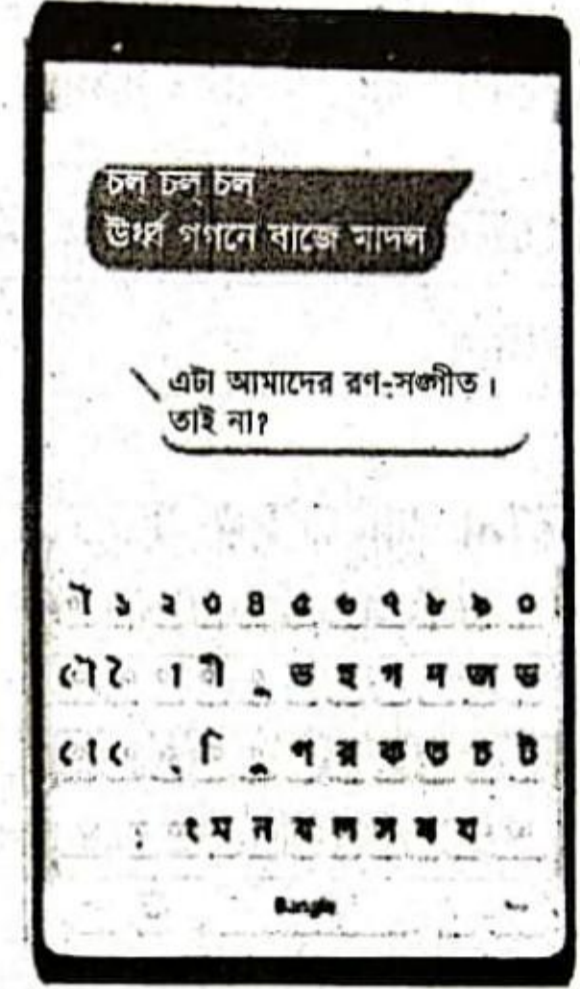 চল্ চল্ চল্
ঊর্ধ্ব গগনে বাজে মাদল
এটা আমাদের রণ-সঙ্গীত।
তাই না?
ৗ ১ ২ ৩ ৪ ৫ ৬ ৭ ৮ ৯ ০
ৌ ৈ া ী ূ ভ হ গ দ জ ড
ো ে ্ ি ু প র ক ত চ ট
ং ম ন ব ল স ষ য
Bangla